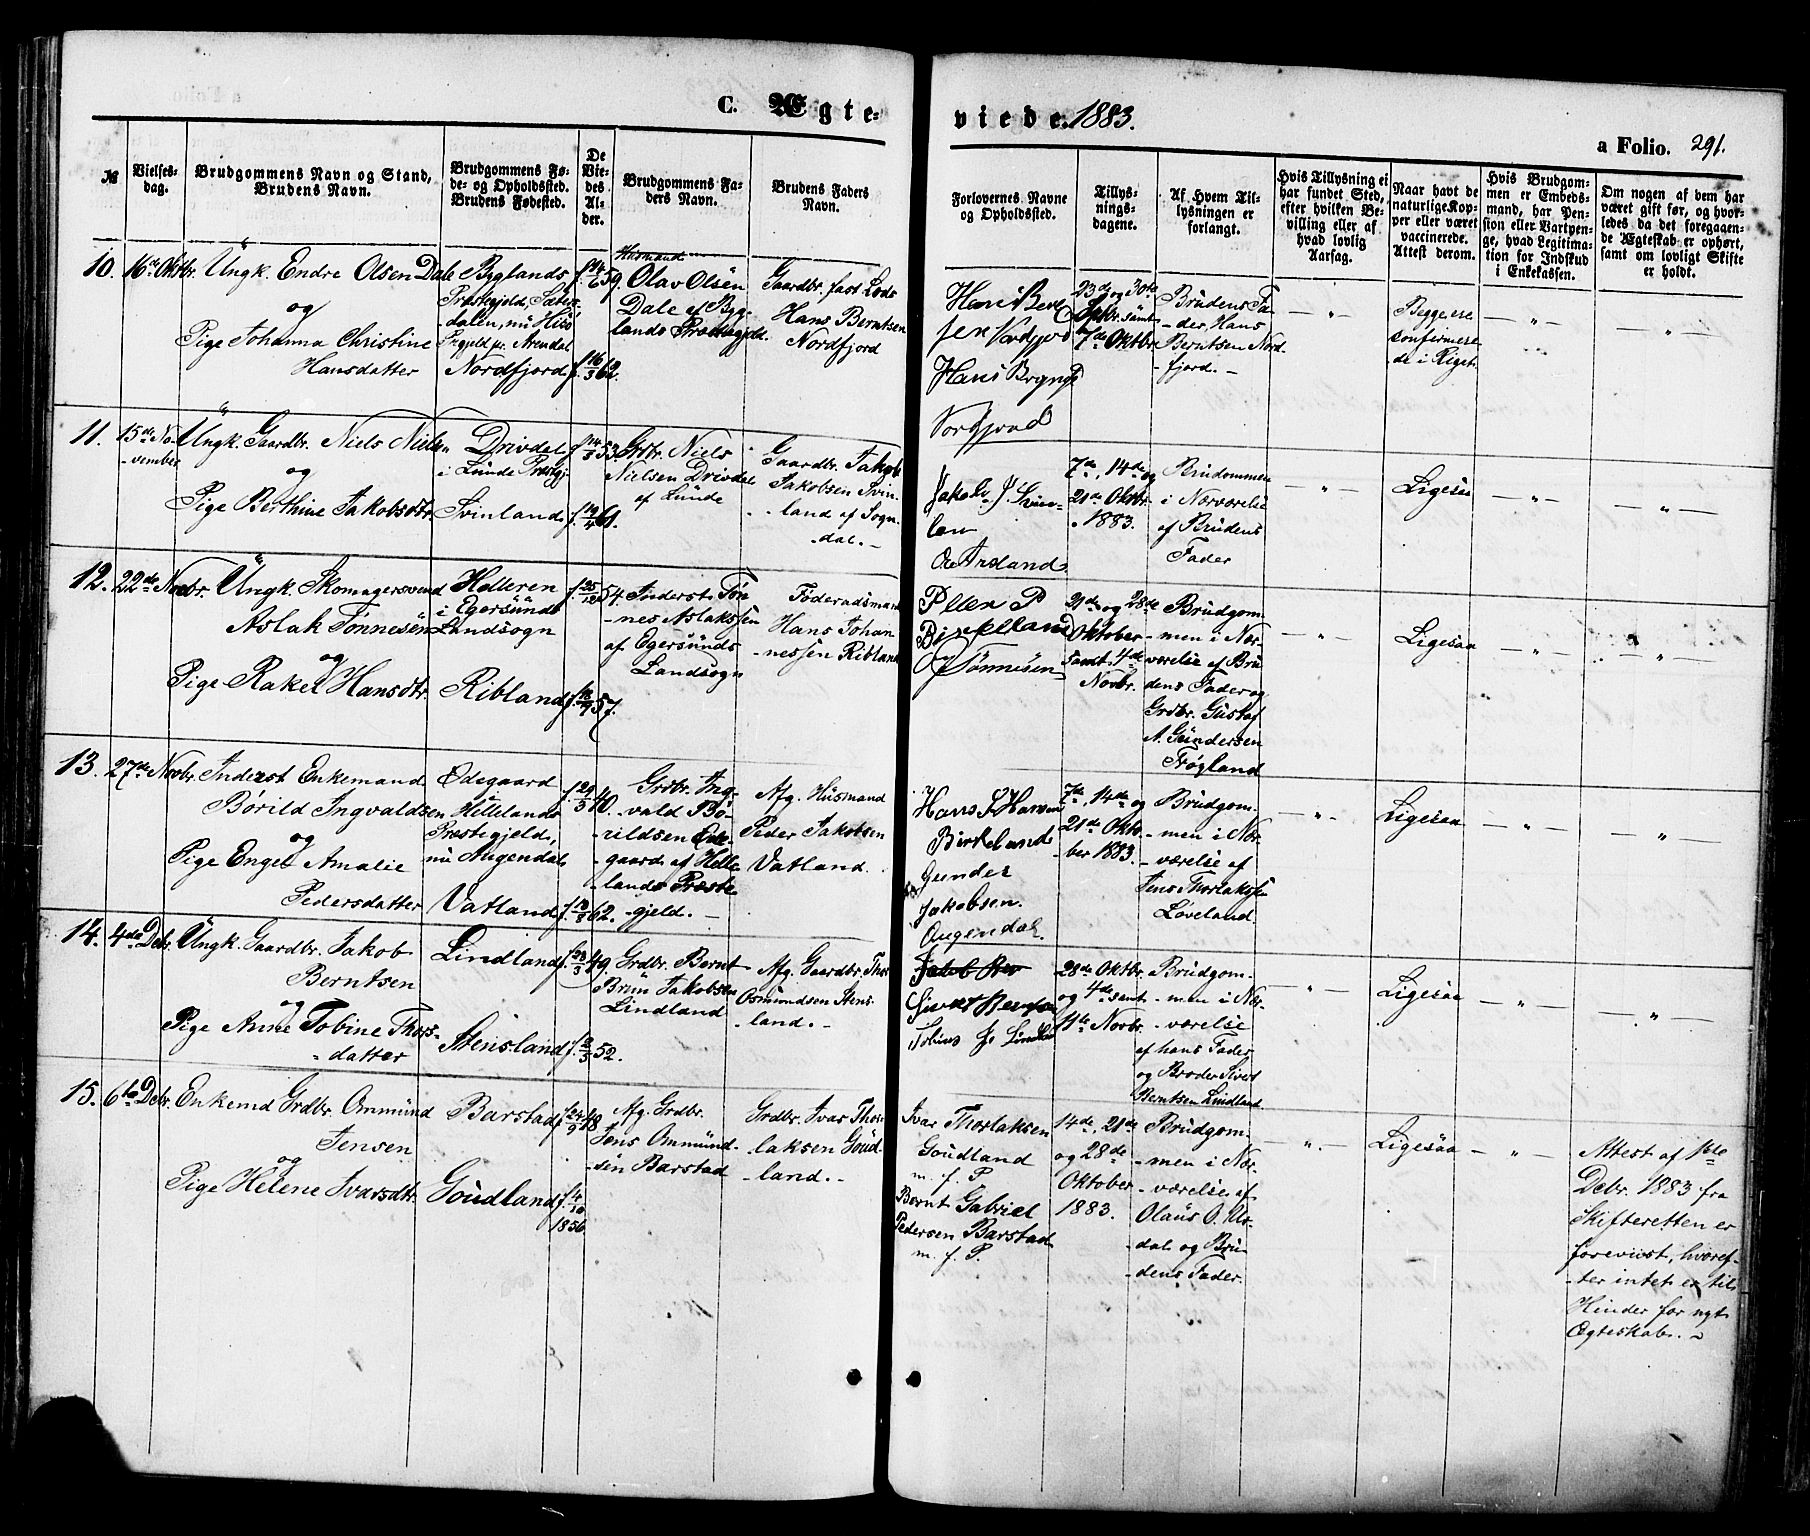 C. Ægteviede. 1883.
a Folio. 291.
№
Vielsesdag.
Brudgommens Navn og Stand,
Brudens Navn.
Brudgommens Fø-
de- og Opholdssted.
Brudens Fødested.
De
Vie-
des
Al-
der.
Brudgommens Fa-
ders Navn.
Brudens Faders
Navn.
Forlovernes Navne
og Opholdssted.
Tillys-
nings-
dagene.
Af Hvem Til-
lysningen er
forlangt.
Hvis Tillysning ei
har fundet Sted,
efter hvilken Be-
villing eller af
hvad lovlig
Aarsag.
Naar havt de
naturlige Kop-
per eller været
vaccinerede.
Attest derom.
Hvis Brudgom-
men er Embeds-
mand, har Pen-
sion eller Vartpen-
ge, hvad Legitima-
tion for Indskud
i Enkekassen.
Om nogen af dem har
været gift før, og hvor-
ledes da det foregaaen-
de Ægteskab er ophørt,
samt om lovligt Skifte
er holdt.
10. 16de Oktbr. Ungk. Endre Olsen Dale
og
Pige Johanna Christine
Hansdatter
Byglands
Præstegjeld, Sæters-
dalen, nu Hisø
Prgjeld pr. Arendal
Nordfjord
f. 14/7 59.
f. 16/3 62.
Husmand
Olav Olsen
Dale af Byg-
lands Præstegjeld.
Gaardbr. fast Lods
Hans Berntsen
Nordfjord
Nordfjord
Hans
23de og 30te
Septbr. samt
7de Oktbr.
Brudens Fa-
der, Hans
Berntsen Nord-
fjord. -
- " -
Begge ere
confirmere-
de i Riget.
- " -
- " -
11. 15de No-
vember
Ungk. Gaardbr. Niels Nielsen
og
Pige Berthine Jakobsdtr.
Drivdal
i Lunde Præstgj.
Svinland
f. 14/5 53.
f. 19/4 61.
Grdbr. Niels
Nielsen Drivdal
af Lunde
Gaardbr. Jakob
Jakobsen Svin-
land af Sogn-
dal. -
Jakob J.
7de, 14de og
21de Oktbr.
1883.
Brudommen
i Nærværelse
af Brudens
Fader
- " -
Ligesaa
- " -
- " -
12. 22de Novbr. Ungk. Skomagersvend
Aslak Tønnesen
og
Pige Rakel Hansdtr.
Helleren
i Egersunds
Landsogn
Ribland
f. 25/12 54.
f. 18/9 57.
Inderst Tøn-
nes Aslaksen
af Egersunds
Landsogn
Føderaadsmand
Hans Johan-
nessen Ribland
Peder P
Tønnesen
21de og 28de
Oktober
samt 4de
Novbr.
Brudgom-
men i Nær-
værelse af Bru-
dens Fader og
Grdbr. Gustaf
A. Gundersen
Frøgland
- " -
Ligesaa
- " -
- " -
13. 27de Novbr. Inderst Enkemand
Børild Ingvaldsen
og
Pige Engel Amalie
Pedersdatter
Ødegaard
Hellelands
Præstegjeld,
nu Augendal
Vatland
f. 29/3 40.
f. 18/8 62.
Grdbr. Ing-
vald Bø-
rildsen Øde-
gaard af Helle-
lands Præste-
gjeld. -
Afg. Husmand
Peder Jakobsen
Vatland.
Hans J Hansen
Birkeland
Gunder
Jakobsen
Augendal.
7de, 14de og
21de Okto-
ber 1883.
Brudgom-
men i Nær-
værelse af
Jens Thorlaksen
Løveland
- " -
Ligesaa
- " -
- " -
14. 4de Debr. Ungk. Gaardbr. Jakob
Berntsen
og
Pige Anne Tobine Thors-
datter
Lindland
Stensland
f. 23/3 49.
f. 2/3 52.
Grdbr. Bernt
Brun Jakobsen
Lindland
Afg. Gaardbr. Thor
Osmundsen Stens-
land. -
Jakob Ber
Sivert Berntsen
Tobias
28de Oktbr.
og 4de samt
11te Novbr.
Brudgom-
men i Nær-
værelse
af hans Fader
og Broder Sivert
Berntsen Lindland
- " -
Ligesaa
- " -
- " -
15. 6te Debr. Enkemd Grdbr. Ommund
Jensen
og
Pige Helene Ivarsdtr.
Barstad
Goudland
f. 24/9 48
f. 4/10
1856
Afg. Grdbr.
Jens Ommund-
sen Barstad
Grdbr. Ivar Thor-
laksen Goud-
land. -
Ivar Thorlaksen
Goudland
m. f. P.
Bernt Gabriel
Pedersen Barstad
m. f. P.
14de, 21de
og 28de
Oktober
1883.
Brudgom-
men i Nær-
værelse af
Olaus O.
dal og Bru-
dens Fader.
- " -
Ligesaa
- " -
Attest af 1ste
Debr. 1883 fra
Skifteretten er
forevist, hvoref-
ter intet er til
Hinder for nyt
Ægteskab. -